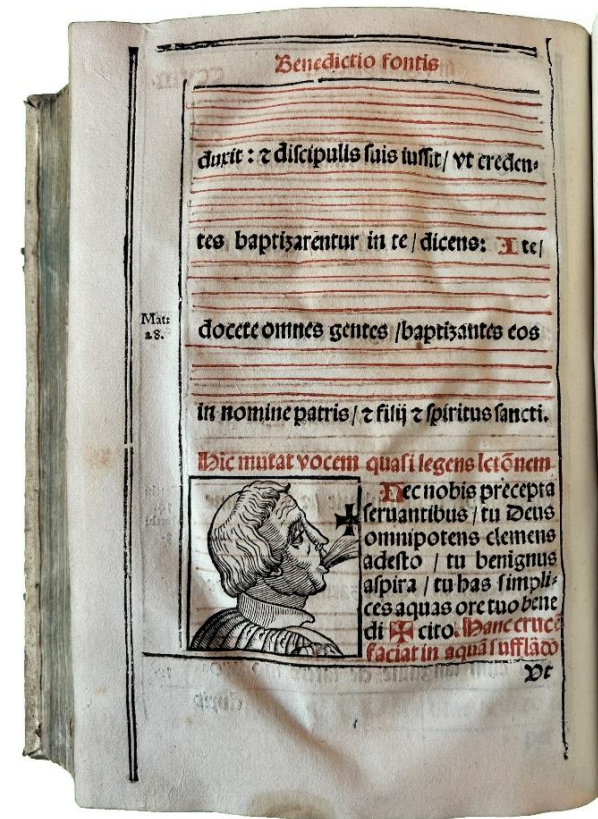 Benedictio fontis
duxit: ⁊ discipulis suis iussit/ vt creden⸗
tes baptizarentur in te / dicens: Ite/
Mat:
28.
docete omnes gentes /baptizantes eos
in nomine patris/ ⁊ filij ⁊ spiritus sancti.
Hic mutat vocem quasi legens lctōnem
Nec nobis precepta
seruantibus / tu Deus
omnipotens clemens
adesto / tu benignus
aspira / tu has simpli⸗
ces aquas ore tuo bene
di ✠ cito. Hanc crucē
faciat in aquā sufflādo
Vt